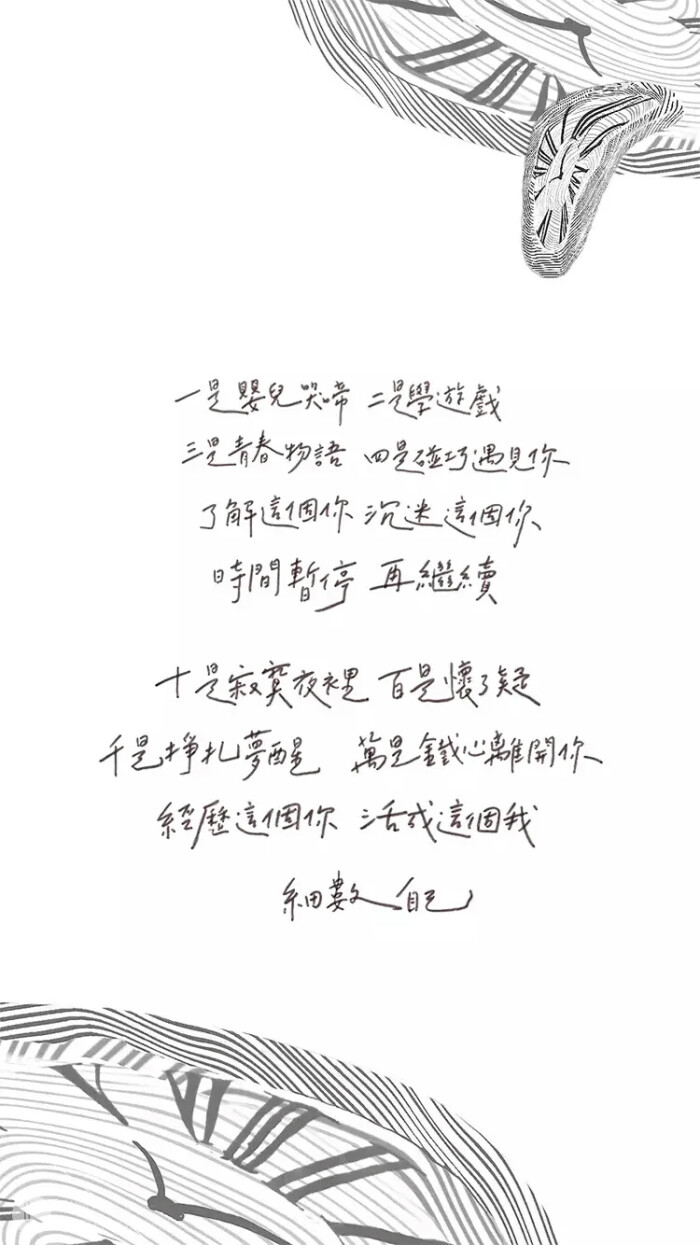 一是嬰兒哭啼 二是學遊戲
三是青春物語 四是碰巧遇見你
了解這個你 沉迷這個你
時間暫停 再繼續
十是寂寞夜裡 百是懷了疑
千是掙扎夢醒 萬是鐵心離開你
經歷這個你 活成這個我
細數自己